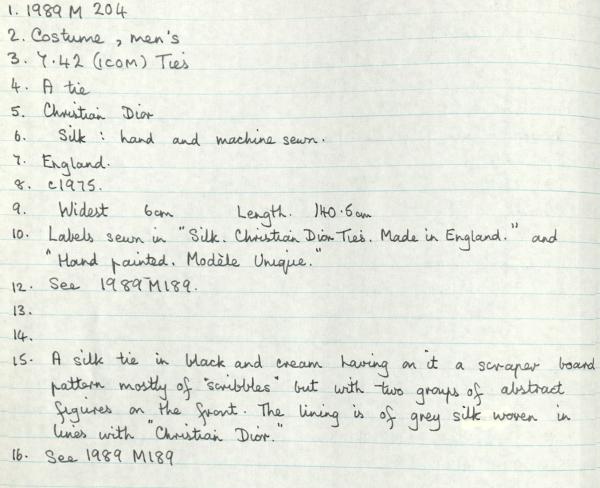 1. 1989 M 204
2. Costume, men's
3. 7.42 (ICOM) Ties
4. A tie
5. Christian Dior
6. Silk : hand and machine sewn.
7. England.
8. c1975.
9. Widest 6cm Length. 140.6cm
10. Labels sewn in "Silk. Christian Dior Ties. Made in England." and
"Hand painted. Modèle Unique."
12. See 1989 M189.
13.
14.
15. A silk tie in black and cream having on it a scraper board
pattern mostly of "scribbles" but with two groups of abstract
figures on the front. The lining is of grey silk woven in
lines with "Christian Dior."
16. See 1989 M189